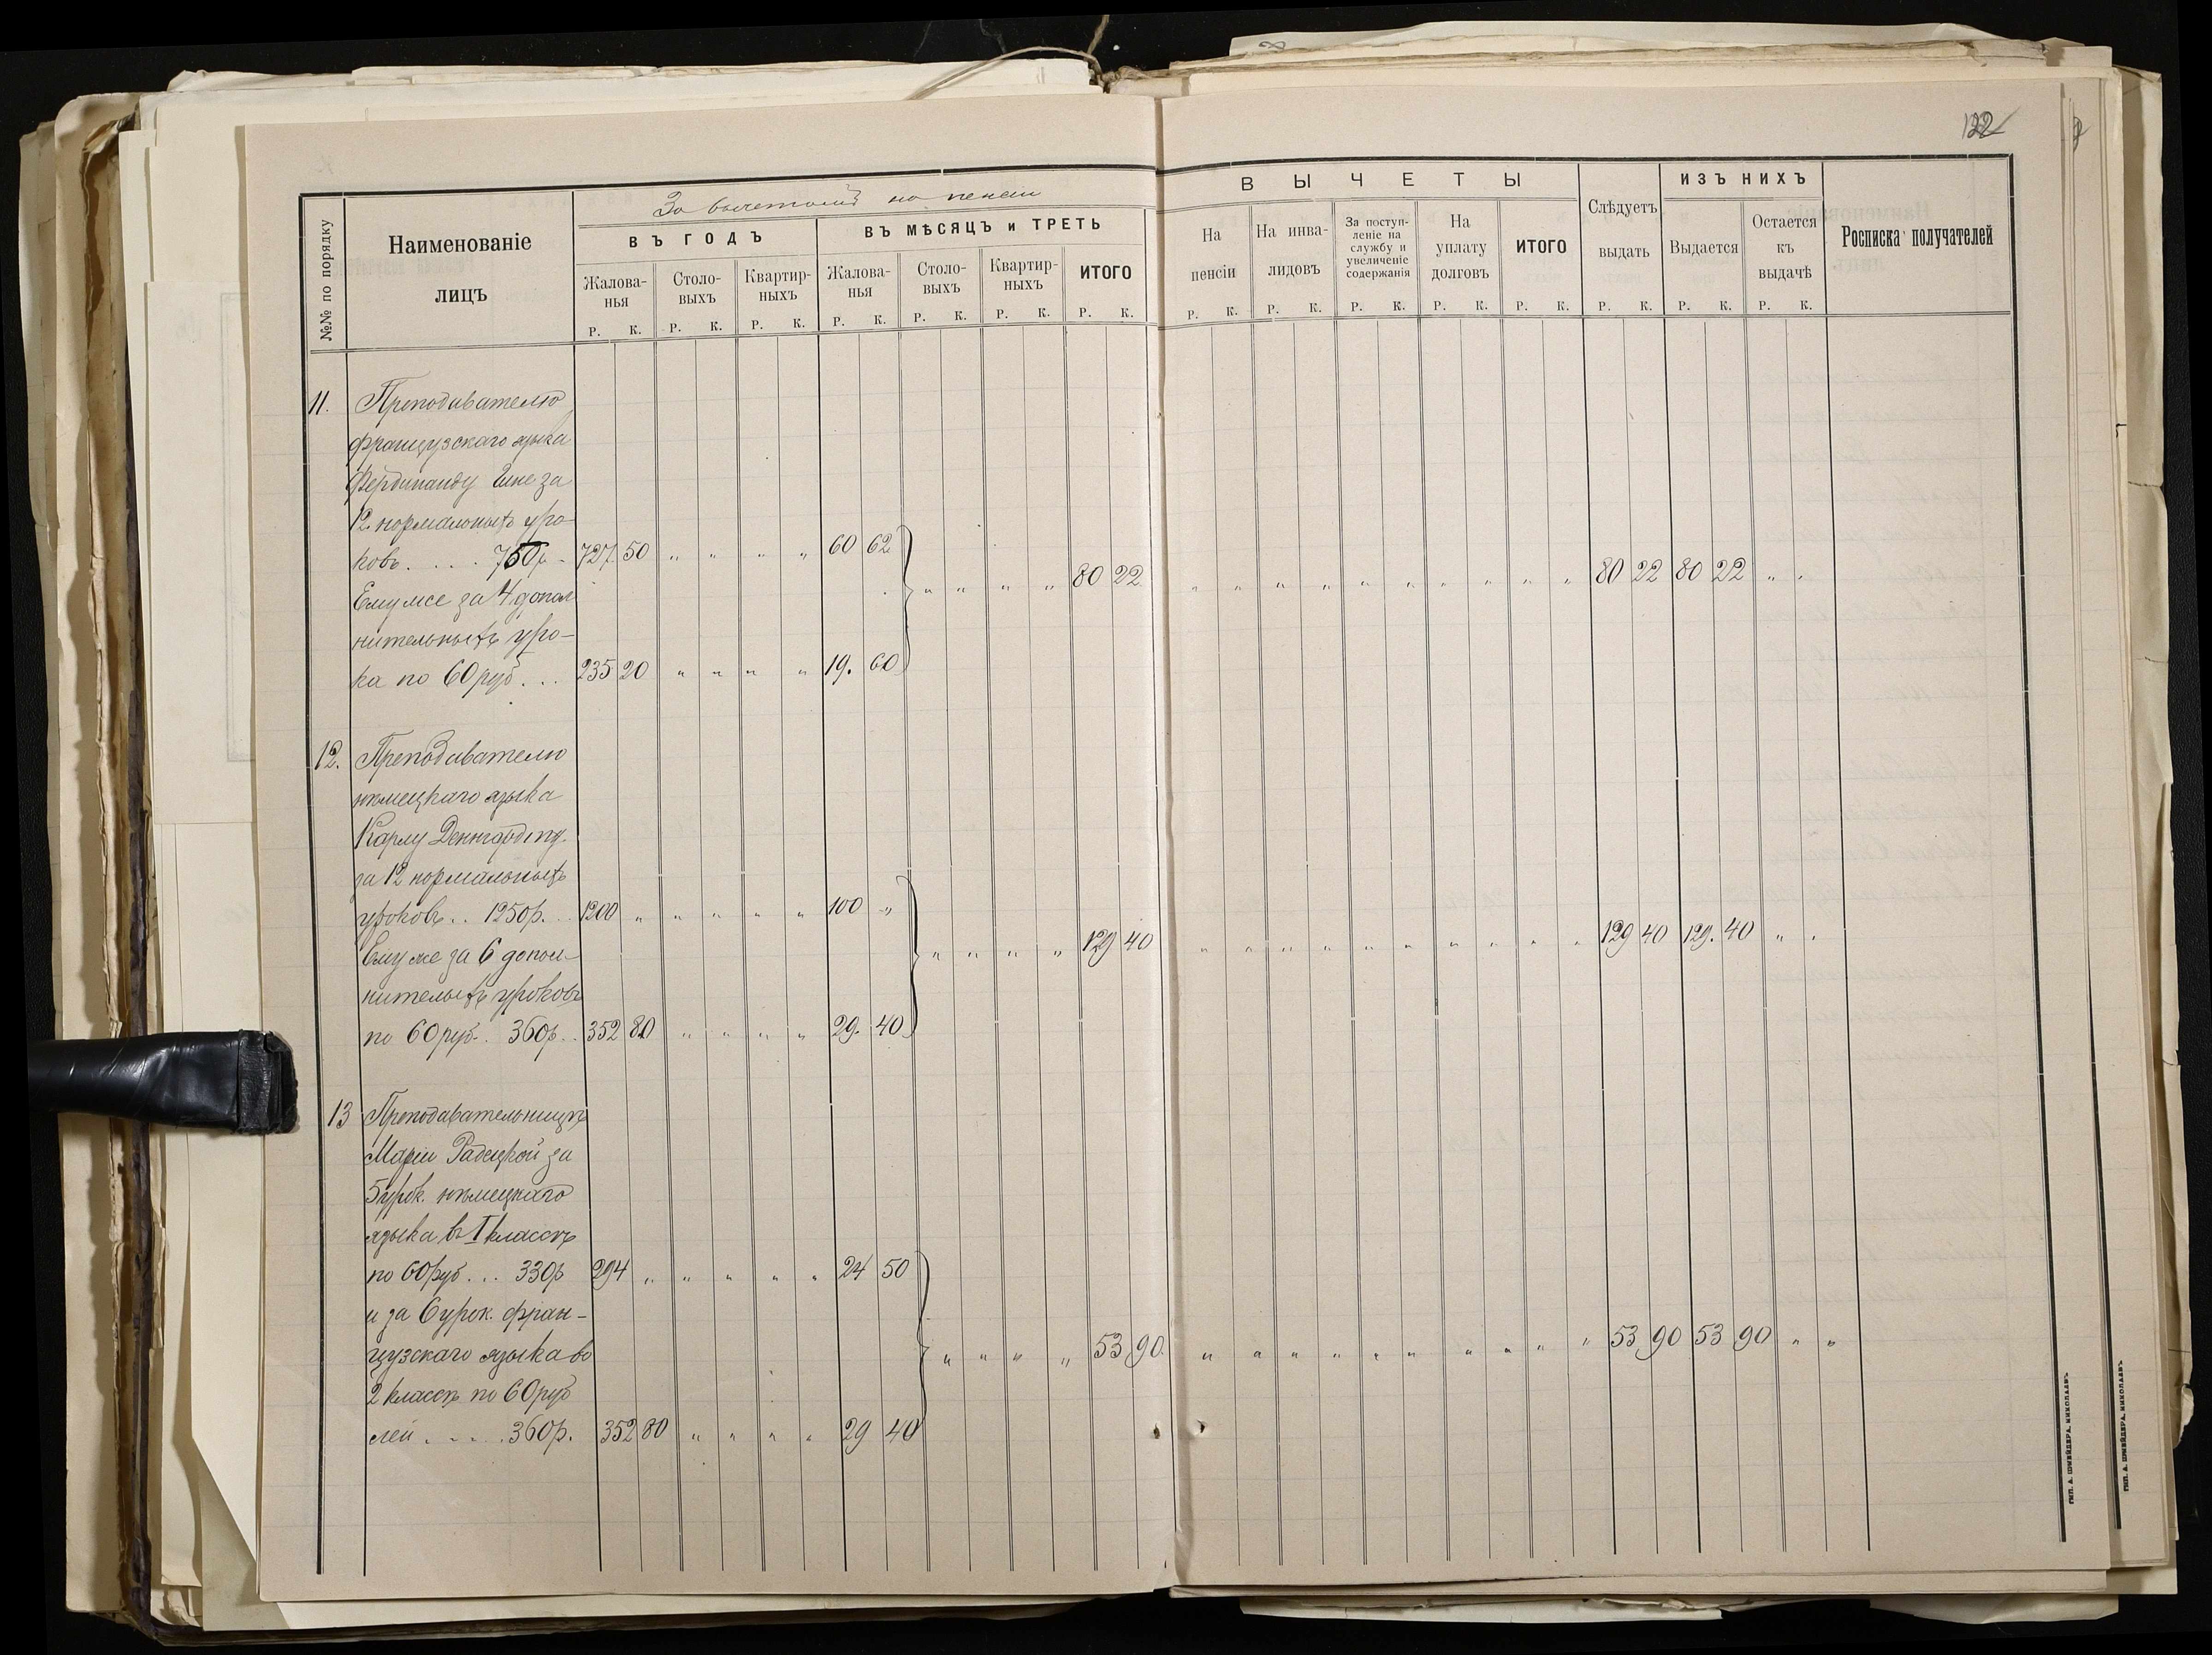 122
За вычетомъ на пенсии
№№ по порядку
Наименованіе
лицъ
ВЪ ГОДЪ
ВЪ МѢСЯЦЪ и ТРЕТЬ
Жалова-
нья
Столо-
выхъ
Квартир-
ныхъ
Жалова-
нья
Столо-
выхъ
Квартир-
ныхъ
ИТОГО
Р. К. Р. К. Р. К. Р. К. Р. К. Р. К. Р. К.
ВЫЧЕТЫ
На
пенсіи
На инва-
лидовъ
За поступ-
леніе на
службу и
увеличеніе
содержанія
На
уплату
долговъ
ИТОГО
Слѣдуетъ
выдать
ИЗЪ НИХЪ
Выдается
Остается
къ
выдачѣ
Росписка получателей
Р. К. Р. К. Р. К. Р. К. Р. К. Р. К. Р. К. Р. К.
11. Преподавателю
французскаго языка
Фердинанду за
12 нормальныхъ уро-
ковъ. . . . 750р. 727 50 " " " " 60 62
80 22 " " " " " " " " " " 80 22 80 22 " "
Ему же за 4 допол
нительныхъ уро-
ка по 60 руб. . . 235 20 " " " " 19. 60
12. Преподавателю
нѣмецкаго языка
Карлу
за 12 нормальныхъ
уроковъ. . 1250р. . 1200 " " " " " 100 "
" " " " 129 40 " " " " " " " " " " 129 40 129. 40 " "
Ему же за 6 допол-
нительныхъ уроковъ
по 60 руб. . 360р. . 352 80 " " " " 29. 40
13 Преподавательницѣ
Маріи Радецкой за
5 урок. нѣмецкаго
языка въ I классѣ
по 60 руб. . . 330р 294 " " " " " 24 50
и за 6 урок. фран-
цузскаго языка во
" " " " 53 90 " " " " " " " " " " 53 90 53 90 " "
2 классѣ по 60 руб
лей . . . . 360р. 352 80 " " " " 29 40
ТИП. А. ШНЕЙДЕРА, НИКОЛАЕВЪ
ТИП. А. ШНЕЙДЕРА, НИКОЛАЕВЪ